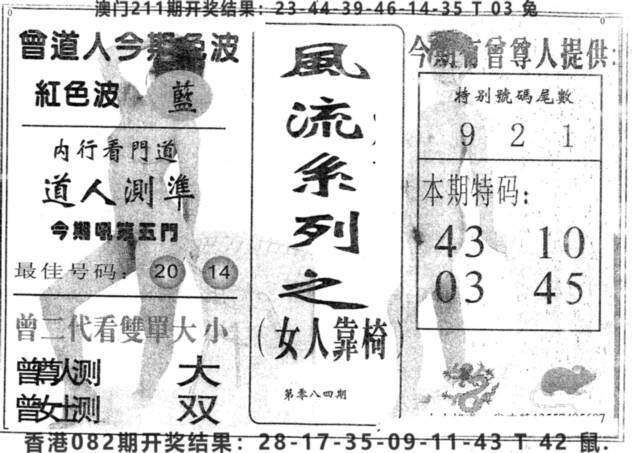 澳门211期开奖结果：23-44-39-46-14-35 T 03 兔
曾道人今期色波
紅色波 藍
内行看門道
道人測準
今期吼第五門
最佳号码： 20 14
曾二代看雙單大小
曾尊人测 大
曾女士测 双
風流系列之
（女人靠椅）
第零八四期
今期有曾尊人提供：
特别號碼尾數
9 2 1
本期特码：
43 10
03 45
香港082期开奖结果：28-17-35-09-11-43 T 42 鼠.